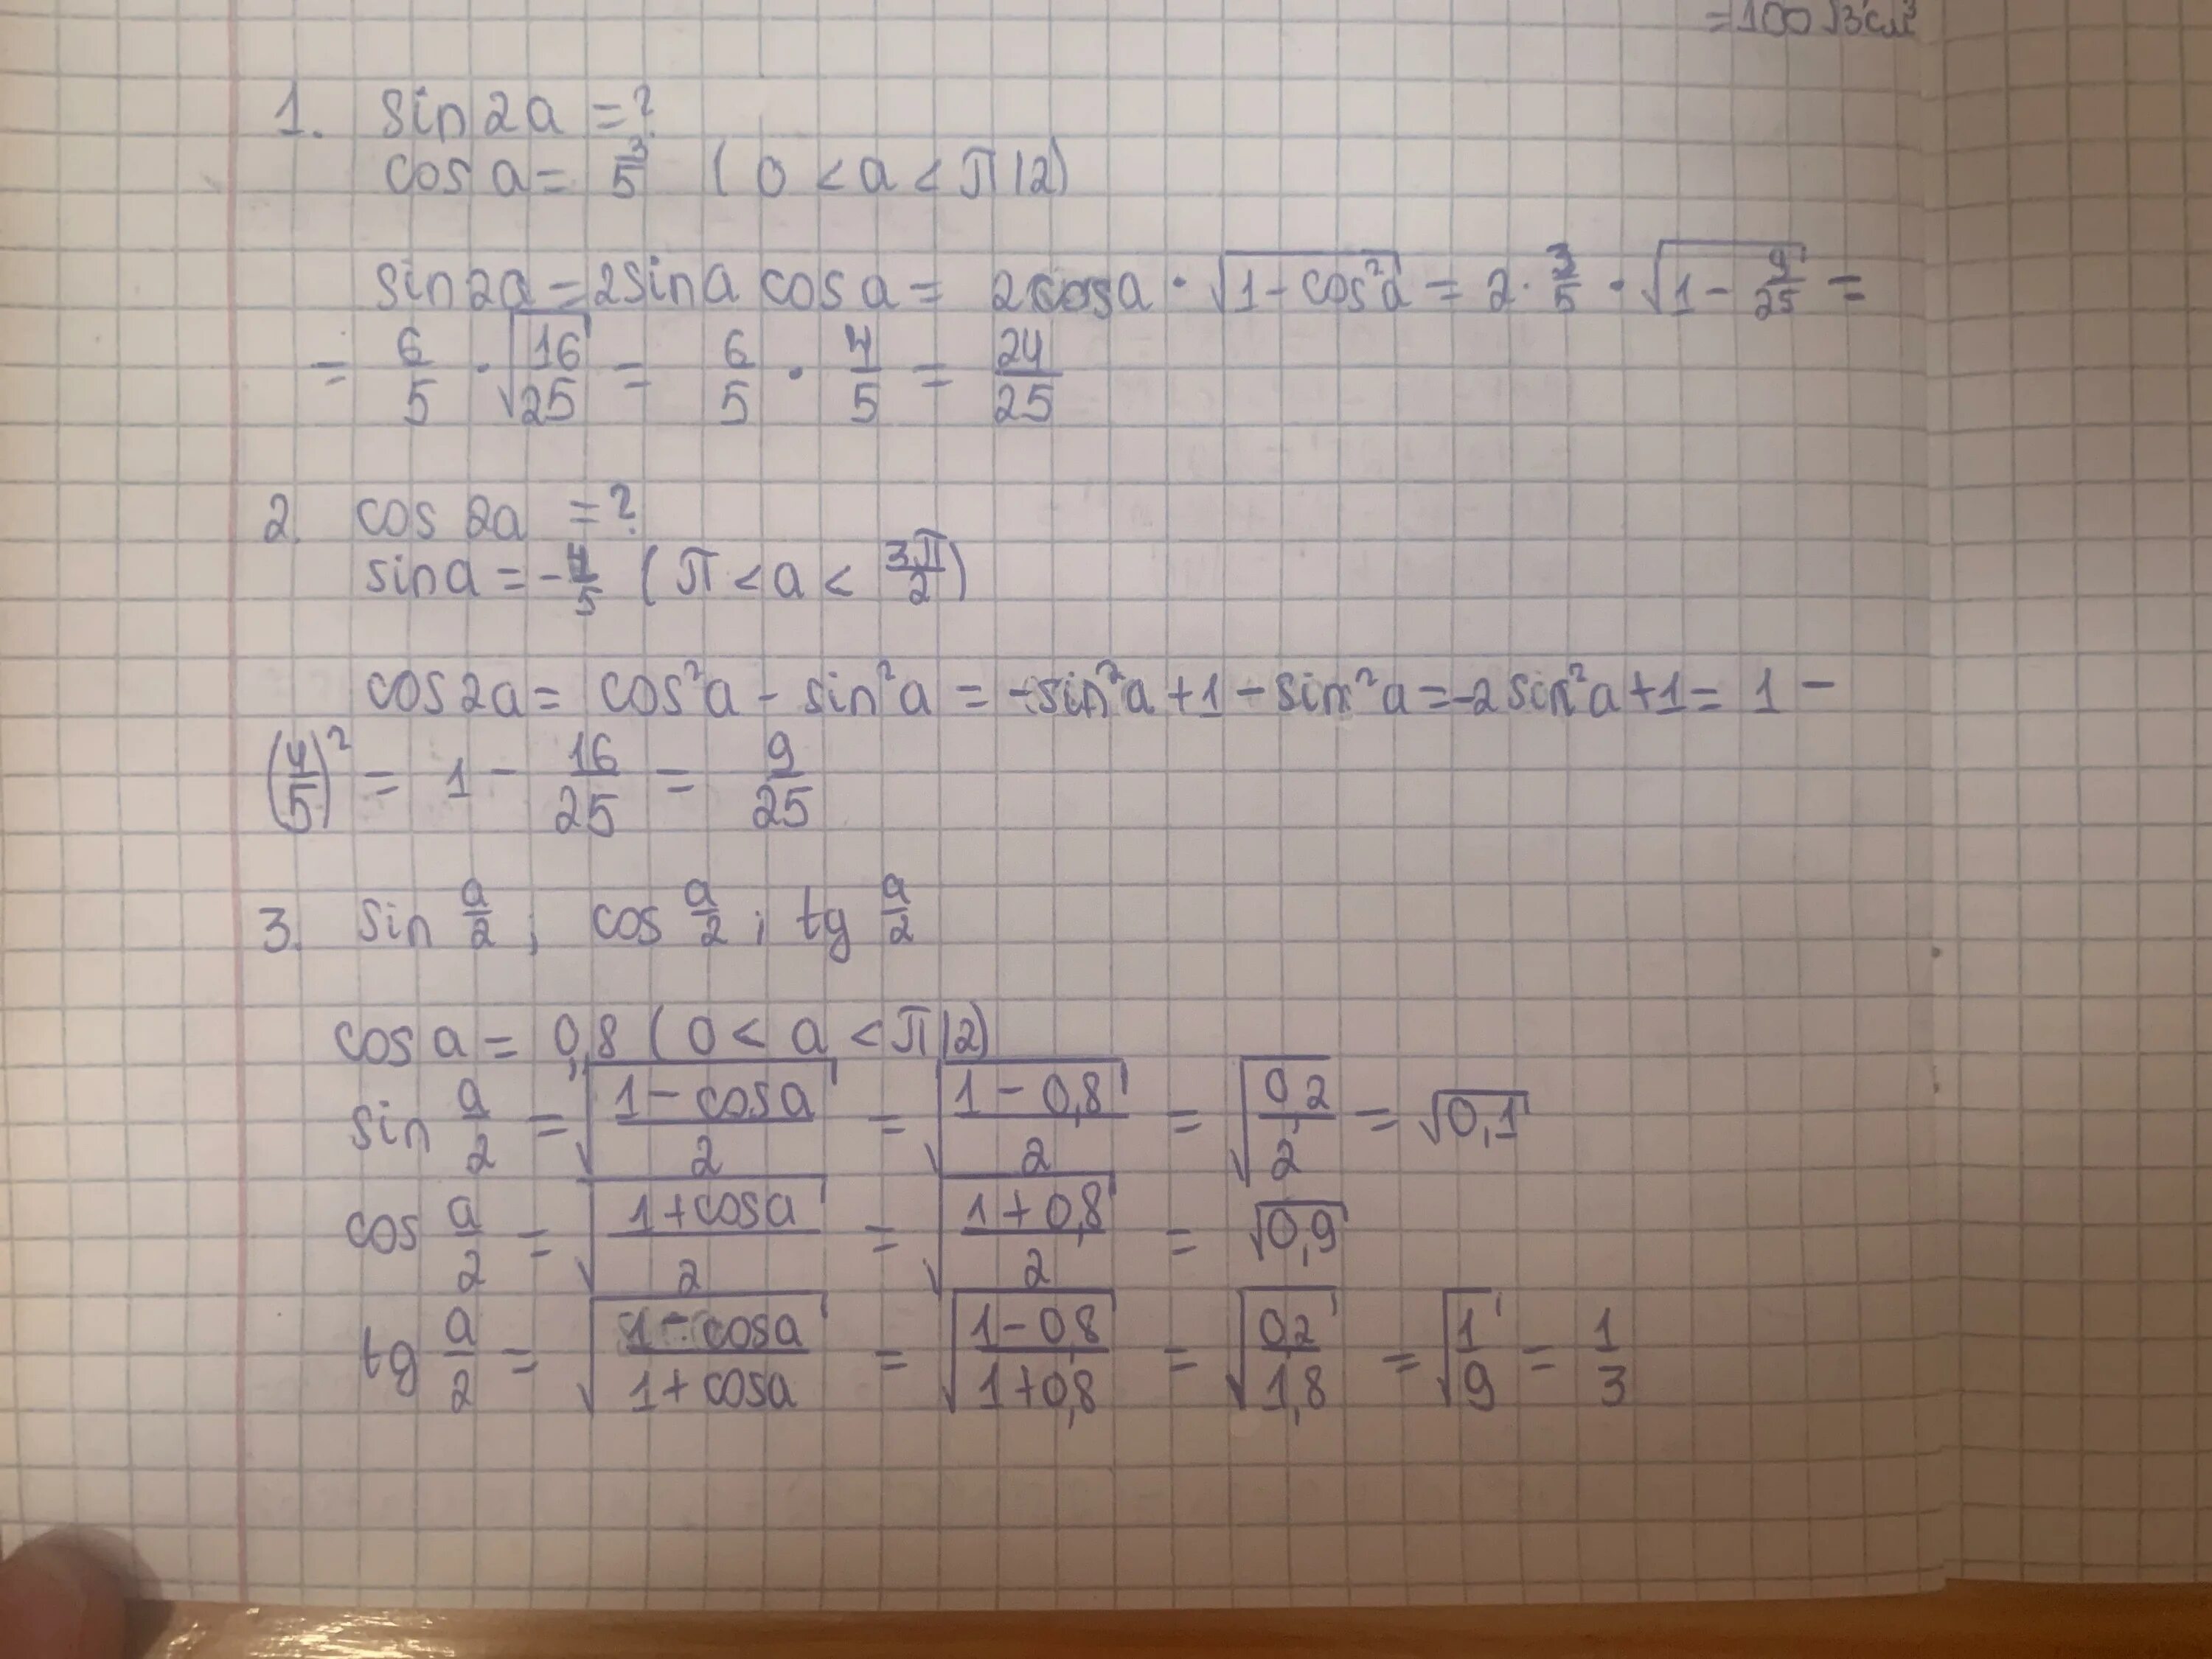 = 100√3 см³
1. sin 2a = ?
cos a = 3/5 ( 0 < a < π/2)
sin 2a = 2 sin a cos a = 2 cos a · √(1 - cos²a) = 2 · 3/5 · √(1 - 9/25) =
= 6/5 · √(16/25) = 6/5 · 4/5 = 24/25
2. cos 2a = ?
sin a = - 4/5 ( π < a < 3π/2)
cos 2a = cos²a - sin²a = - sin²a + 1 - sin²a = -2 sin²a + 1 = 1 -
(4/5)² = 1 - 16/25 = 9/25
3. sin a/2 ; cos a/2 ; tg a/2
cos a = 0,8 ( 0 < a < π/2)
sin a/2 = √((1 - cos a)/2) = √((1 - 0,8)/2) = √(0,2/2) = √0,1
cos a/2 = √((1 + cos a)/2) = √((1 + 0,8)/2) = √0,9
tg a/2 = √((1 - cos a)/(1 + cos a)) = √((1 - 0,8)/(1 + 0,8)) = √(0,2/1,8) = √(1/9) = 1/3